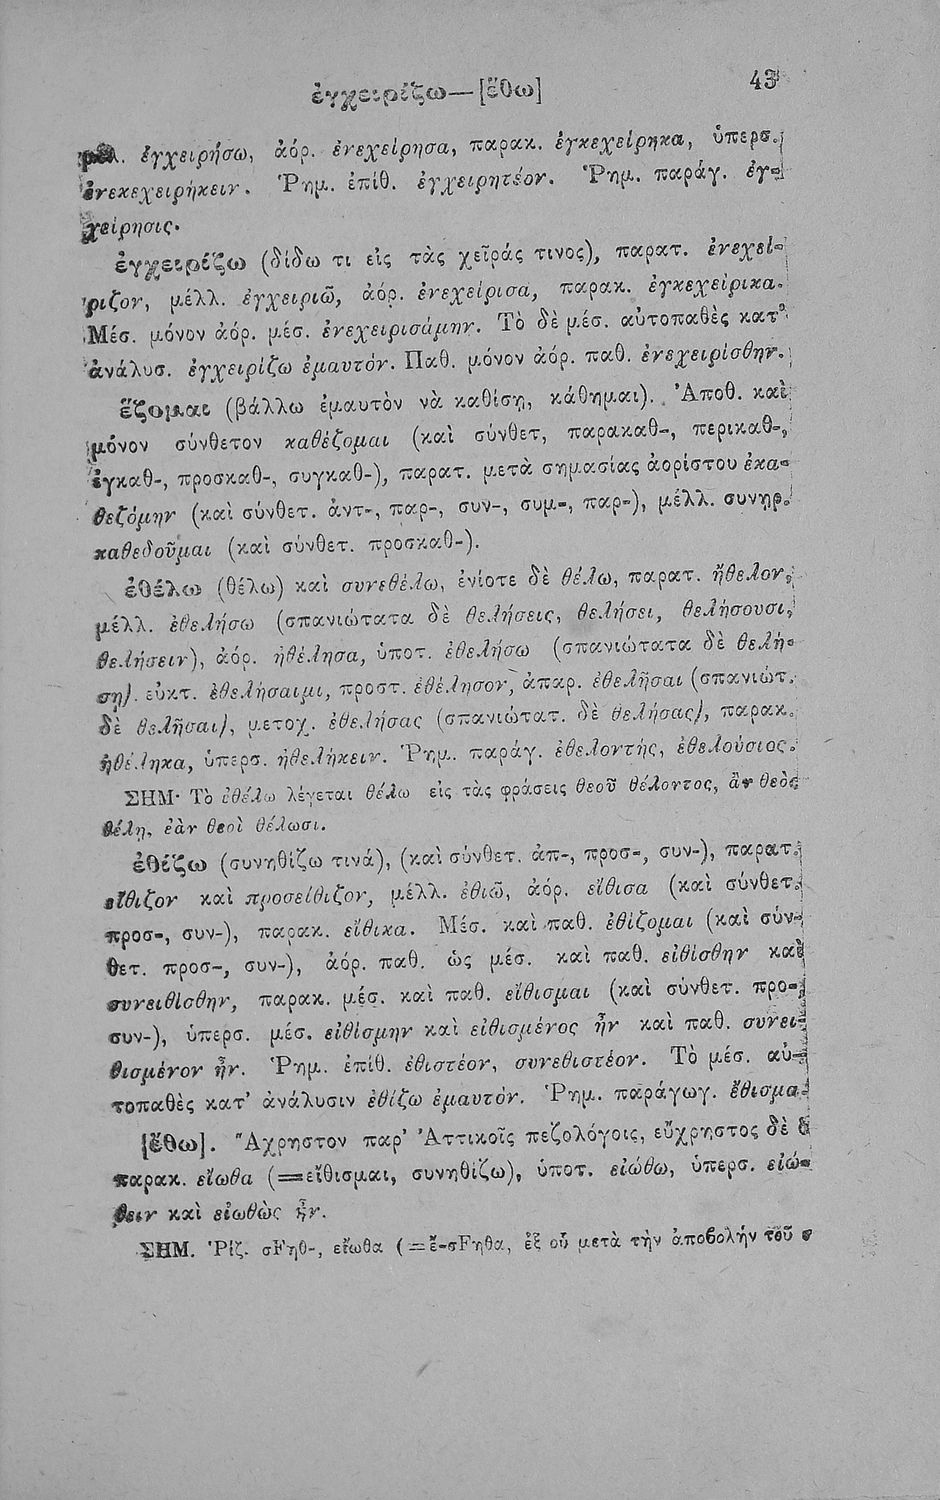 ἐγχειρίζω—[ἔθω] 43
μέλ. ἐγχειρήσω, ἀόρ. ἐνεχείρησα, παρακ. ἐγκεχείρηκα, ὑπερσ.
ἐνεκεχειρήκειν. Ῥημ. ἐπίθ. ἐγχειρητέον. Ῥημ. παράγ. ἐγ-
χείρησις.
ἐγχειρίζω (δίδω τι εἰς τὰς χεῖράς τινος), παρατ. ἐνεχεί-
ριζον, μέλλ. ἐγχειριῶ, ἀόρ. ἐνεχείρισα, παρακ. ἐγκεχείρικα.
Μέσ. μόνον ἀόρ. μέσ. ἐνεχειρισάμην. Τὸ δὲ μέσ. αὐτοπαθὲς κατ'
ἀνάλυσ. ἐγχειρίζω ἐμαυτόν. Παθ. μόνον ἀόρ. παθ. ἐνεχειρίσθην.
ἕζομαι (βάλλω ἐμαυτὸν νὰ καθίσῃ, κάθημαι). Ἀποθ. καὶ
μόνον σύνθετον καθέζομαι (καὶ σύνθετ, παρακαθ-, περικαθ-,
ἐγκαθ-, προσκαθ-, συγκαθ-), παρατ. μετὰ σημασίας ἀορίστου ἐκα-
θεζόμην (καὶ σύνθετ. ἀντ-, παρ-, συν-, συμ-, παρ-), μέλλ. συνηρ.
καθεδοῦμαι (καὶ σύνθετ. προσκαθ-).
ἐθέλω (θέλω) καὶ συνεθέλω, ἐνίοτε δὲ θέλω, παρατ. ἤθελον,
μέλλ. ἐθελήσω (σπανιώτατα δὲ θελήσεις, θελήσει, θελήσουσι,
θελήσειν), ἀόρ. ἠθέλησα, ὑποτ. ἐθελήσω (σπανιώτατα δὲ θελή-
σῃ). εὐκτ. ἐθελήσαιμι, προστ. ἐθέλησον, ἀπαρ. ἐθελῆσαι (σπανιώτ.
δὲ θελῆσαι), μετοχ. ἐθελήσας (σπανιώτατ. δὲ θελήσας), παρακ.
ἠθέληκα, ὑπερσ. ἠθελήκειν. Ῥημ. παράγ. ἐθελοντής, ἐθελούσιος.
ΣΗΜ· Τὸ ἐθέλω λέγεται θέλω εἰς τὰς φράσεις θεοῦ θέλοντος, ἂν θεὸς
θέλῃ, ἐὰν θεοὶ θέλωσι.
ἐθίζω (συνηθίζω τινά), (καὶ σύνθετ. ἀπ-, προσ-, συν-), παρατ.
εἴθιζον καὶ προσείθιζον, μέλλ. ἐθιῶ, ἀόρ. εἴθισα (καὶ σύνθετ.
προσ-, συν-), παρακ. εἴθικα. Μέσ. καὶ παθ. ἐθίζομαι (καὶ σύν-
θετ. προσ-, συν-), ἀόρ. παθ. ὡς μέσ. καὶ παθ. εἰθίσθην καὶ
συνειθίσθην, παρακ. μέσ. καὶ παθ. εἴθισμαι (καὶ σύνθετ. προ-,
συν-), ὑπερσ. μέσ. εἰθίσμην καὶ εἰθισμένος ἦν καὶ παθ. συνει-
θισμένον ἦν. Ῥημ. ἐπίθ. ἐθιστέον, συνεθιστέον. Τὸ μέσ. αὐ-
τοπαθὲς κατ' ἀνάλυσιν ἐθίζω ἐμαυτόν. Ῥημ. παράγωγ. ἔθισμα.
[ἔθω]. Ἄχρηστον παρ' Ἀττικοῖς πεζολόγοις, εὔχρηστος δὲ ὁ
παρακ. εἴωθα (=εἴθισμαι, συνηθίζω), ὑποτ. εἰώθω, ὑπερσ. εἰώ-
θειν καὶ εἰωθὼς ἦν.
ΣΗΜ. Ῥίζ. σϜηθ-, εἴωθα (=ἔ-σϜηθα, ἐξ οὗ μετὰ τὴν ἀποβολήν τοῦ σ